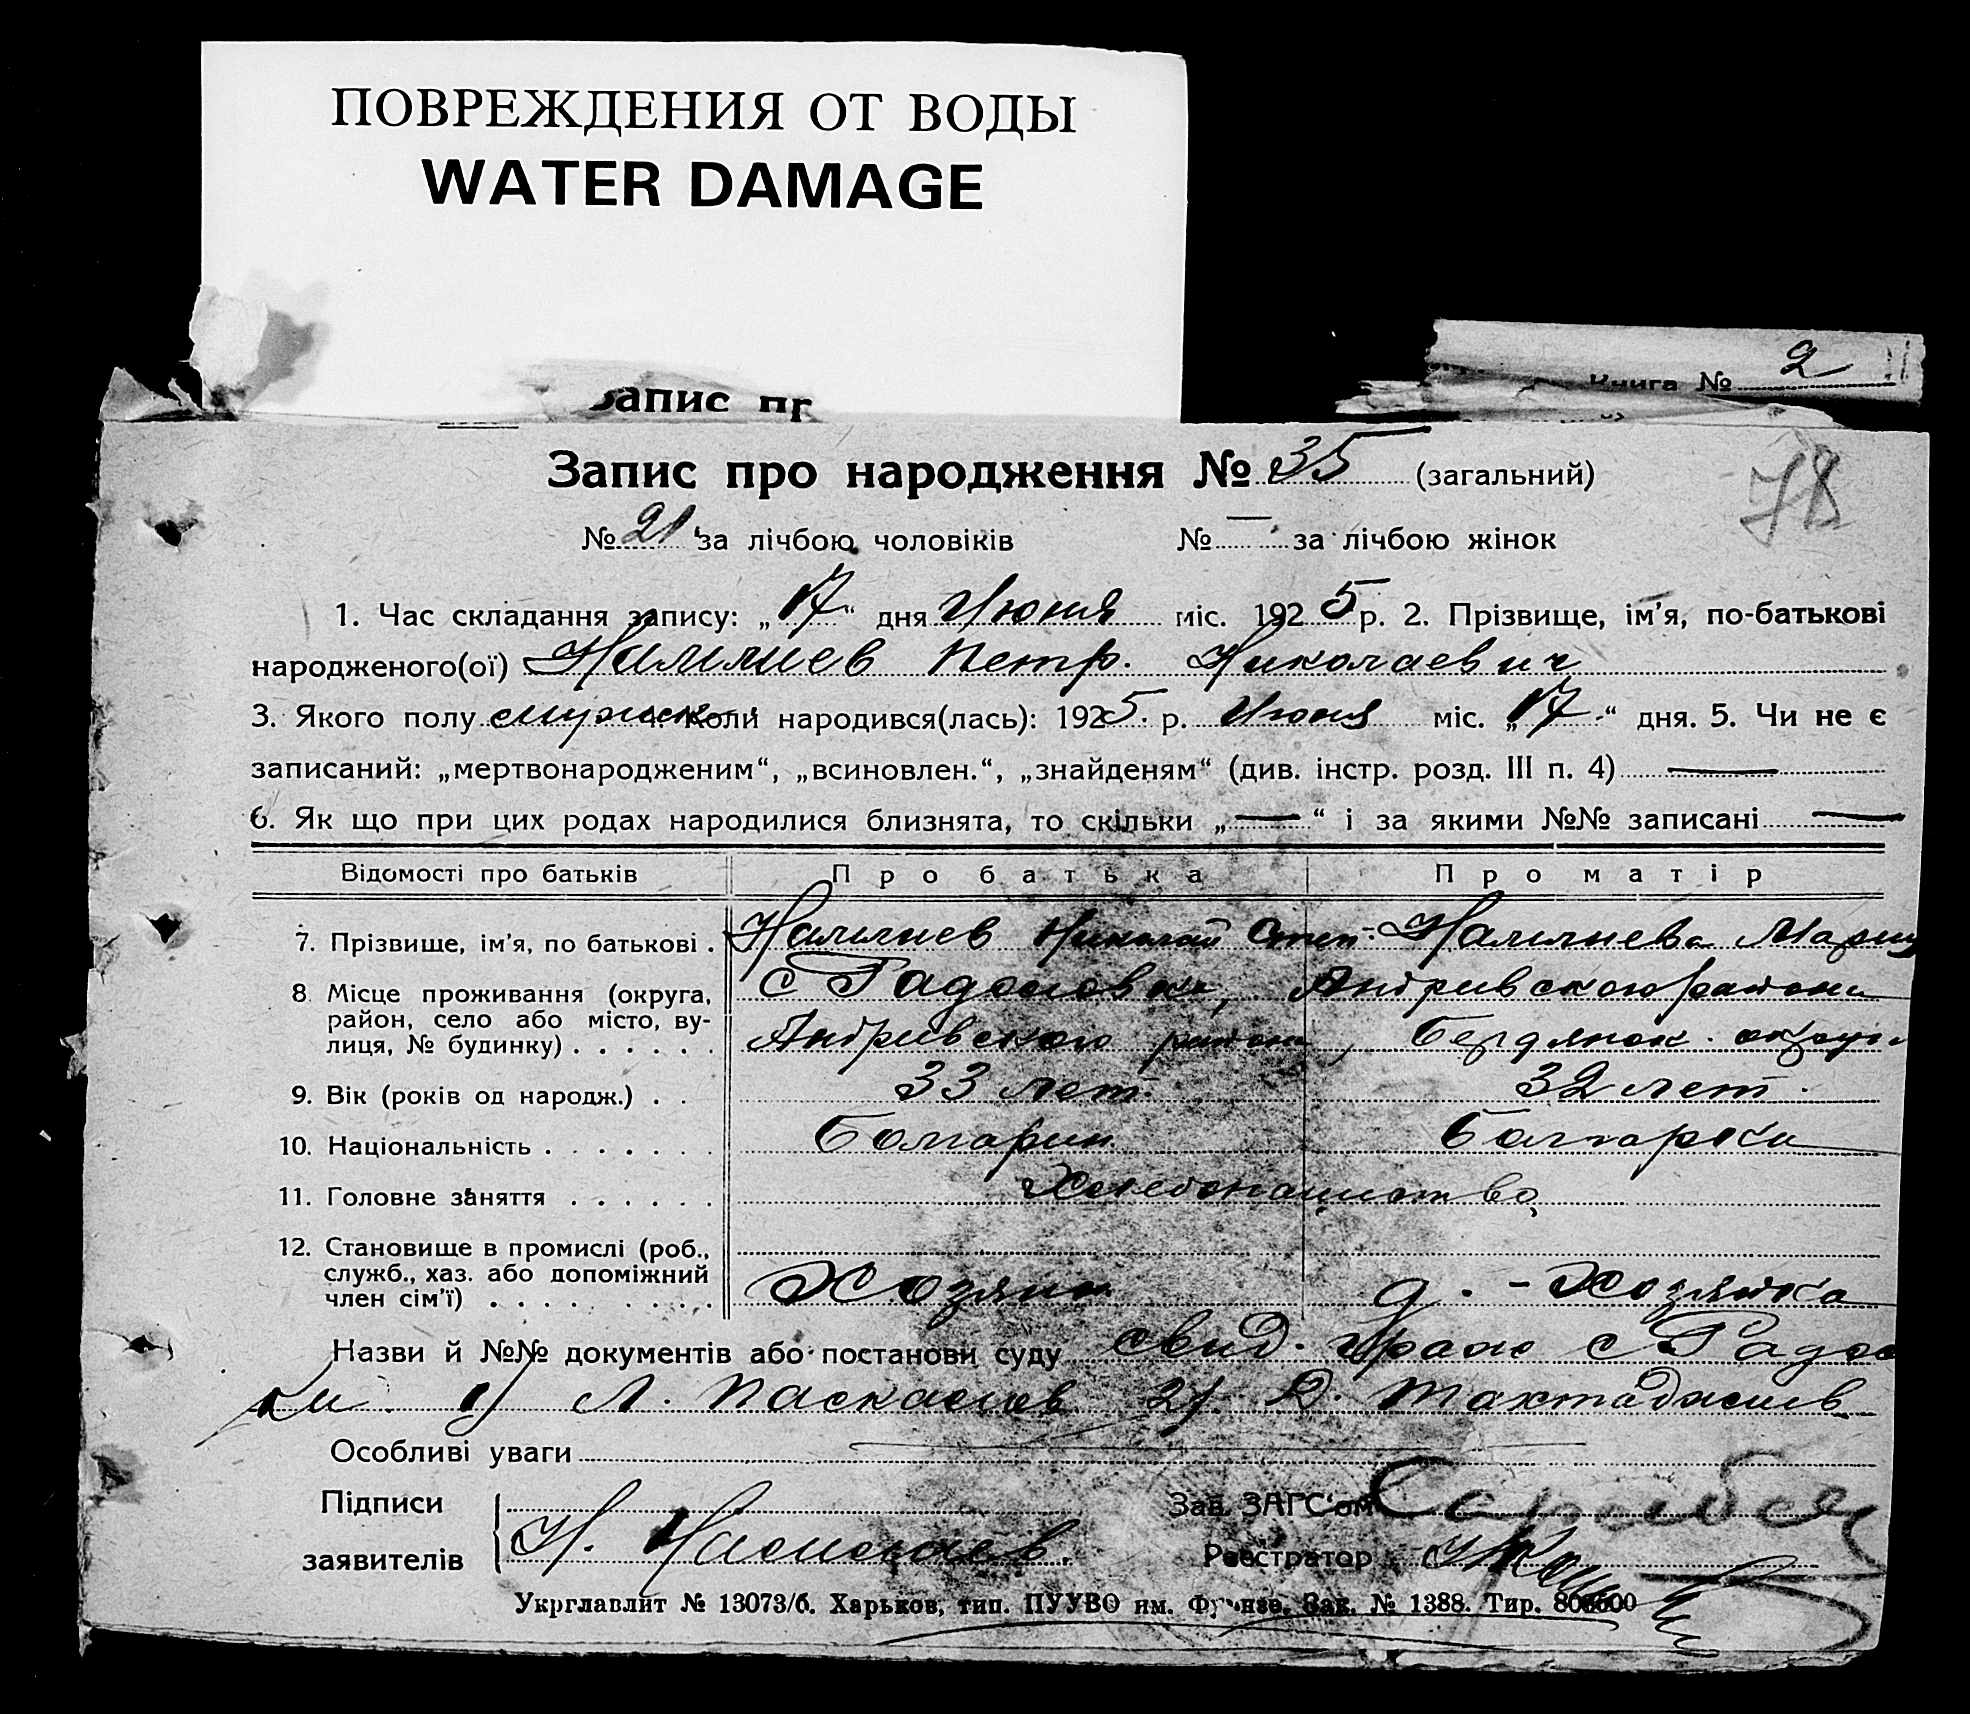 ПОВРЕЖДЕНИЯ ОТ ВОДЫ
WATER DAMAGE
Книга № 2
Запис пр
Запис про народження № 35 (загальний)
78
№ 21 за лічбою чоловіків № — за лічбою жінок
1. Час складання запису: „17“ дня Июня міс. 1925 р. 2. Прізвище, ім’я, по-батькові
народженого(ої) Петр. Николаевич
3. Якого полу мужск. 4. Коли народився(лась): 1925. р. Июня міс. „17“ дня. 5. Чи не є
записаний: „мертвонародженим“, „всиновлен.“, „знайденям“ (див. інстр. розд. III п. 4) —
6. Як що при цих родах народилися близнята, то скільки „—“ і за якими №№ записані —
Відомості про батьків Про батька Про матір
7. Прізвище, ім’я, по батькові . Николай Степ. Мария
8. Місце проживання (округа, с Радоловка, Андриевского района
район, село або місто, ву-
лиця, № будинку) . . . . . . Андриевского района, Бердянск. округа
9. Вік (років од народж.) . . 33 лет. 32 лет.
10. Національність . . . . . . . Болгарин Болгарка
11. Головне заняття . . . . . . Хлебопашество
12. Становище в промислі (роб.,
служб., хаз. або допоміжний
член сім’ї) . . . . . . . . Хозяин д. - Хозяйка
Назви й №№ документів або постанови суду свид. с Радол
ки 1) Л. 2) Д. Тахтаджиев
Особливі уваги
Підписи Зав. ЗАГС‘ом
заявителів Н. Реєстратор
Укрглавліт № 13073/б. Харьков, тип. ПУУВО им. Фрунзе. Зак. № 1388. Тир.